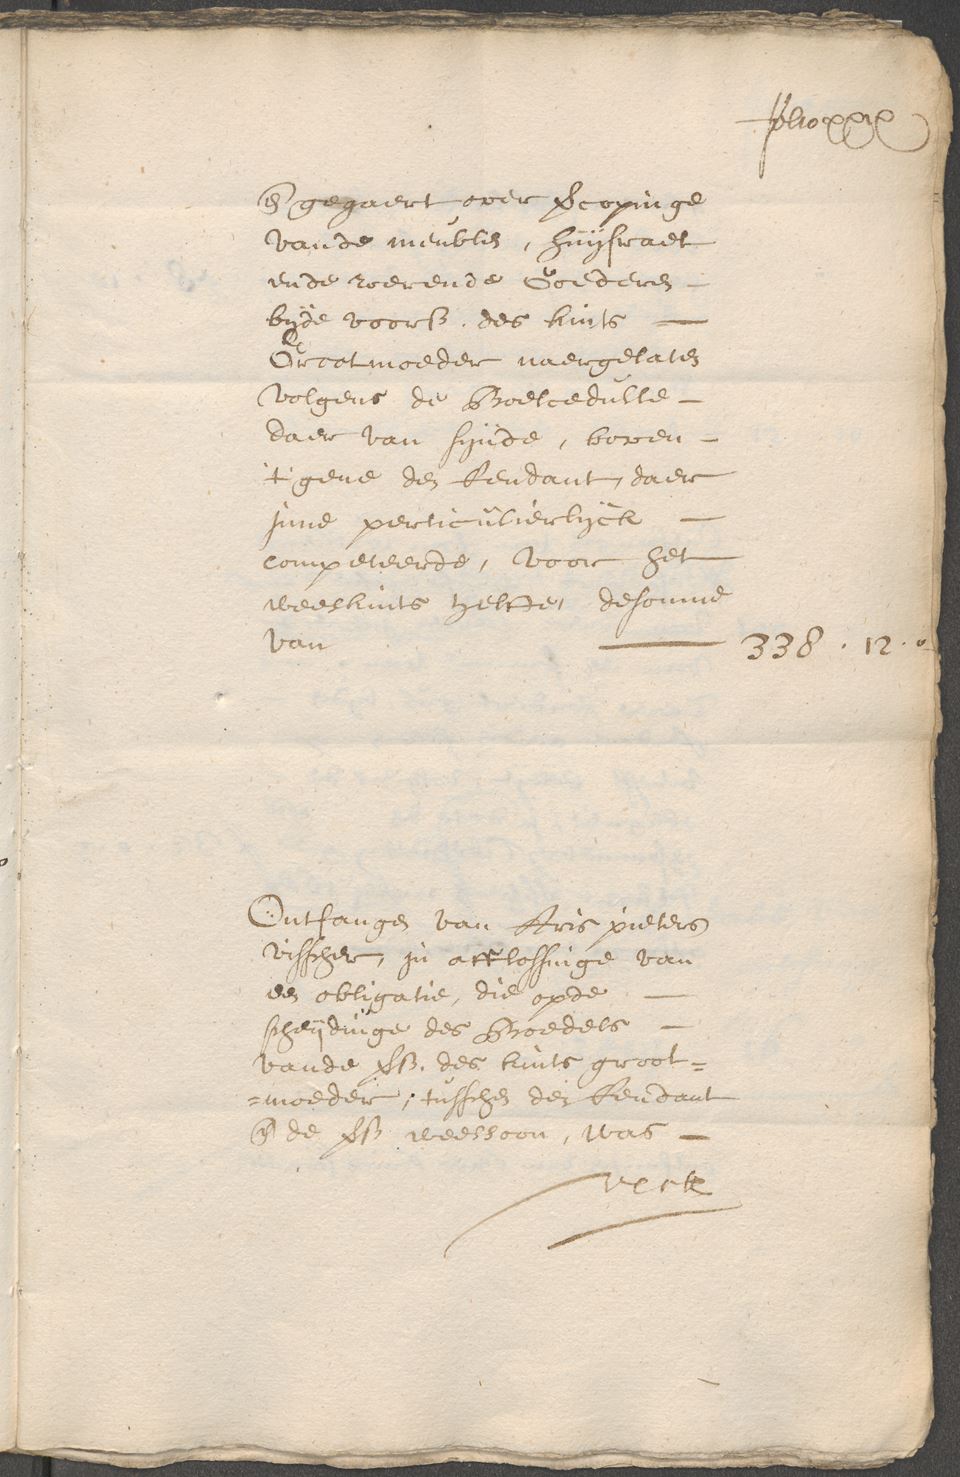 folio xxix
En gegaert over vercopinge
vande meublen, huijsraet
ende roerende Goederen -
bijde voorß. des kints -
Grootmoeder naergelaten
volgens de Boelcedulle -
daer van sijnde, boven -
't gene den Rendant, daer
inne perticulierlijck -
competeerde, voor het
weeskints helfte, desomme
van - 338 . 12 . 0
Ontfangen van Aris pieters
visscher, in afflossinge van
een obligatie, die opde -
scheijdinge des Boedels -
vande vß. des kints groot=
=moeder, tusschen den Rendant
En de vß weessoon, was -